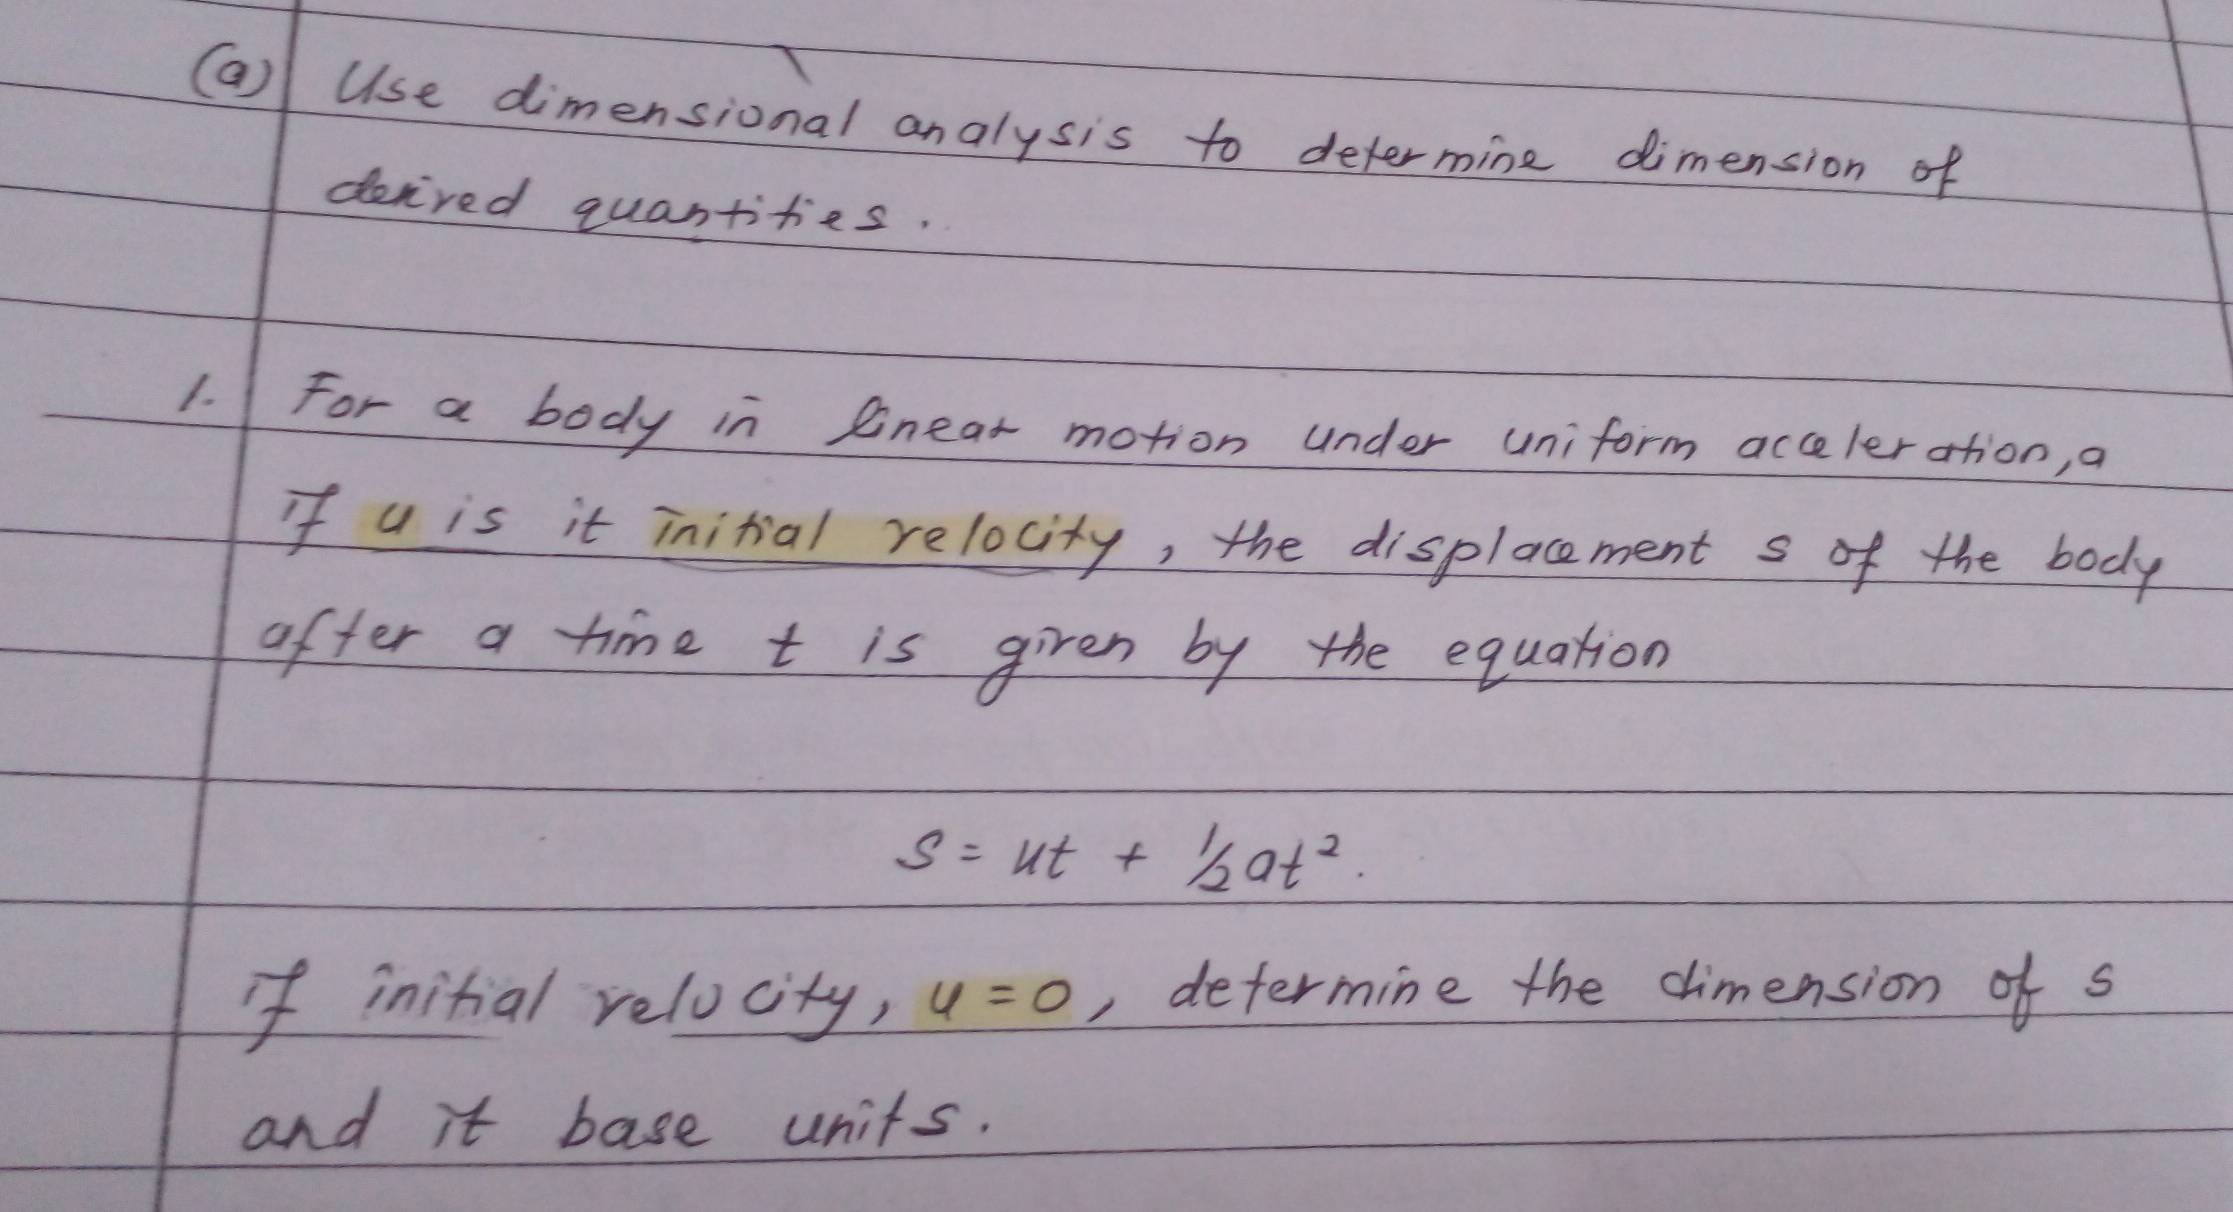 (a) Use dimensional analysis to determine dimension of
derived quantities.
1. For a body in linear motion under uniform acceleration, a
if u is it initial velocity, the displacement s of the body
after a time t is given by the equation
s = ut + 1/2 at².
if initial velocity, u = 0, determine the dimension of s
and it base units.